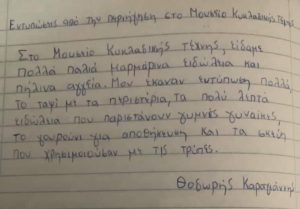 Εντυπώσεις από την περιήγηση στο Μουσείο Κυκλαδικής Τέχνης
Στο Μουσείο Κυκλαδικής Τέχνης, είδαμε
πολλά παλιά μαρμάρινα ειδώλεια και
πήλινα αγγεία. Μου έκαναν εντύπωση πολλά,
Το ταψί με τα περιστέρια, τα πολύ λιτά
ειδώλεια που παριστάνουν γυμνές γυναίκες,
το γουρούνι για αποθήκευση και τα σκεύη
που χρησιμοποιούσαν με τις τρύπες.
Θοδωρής